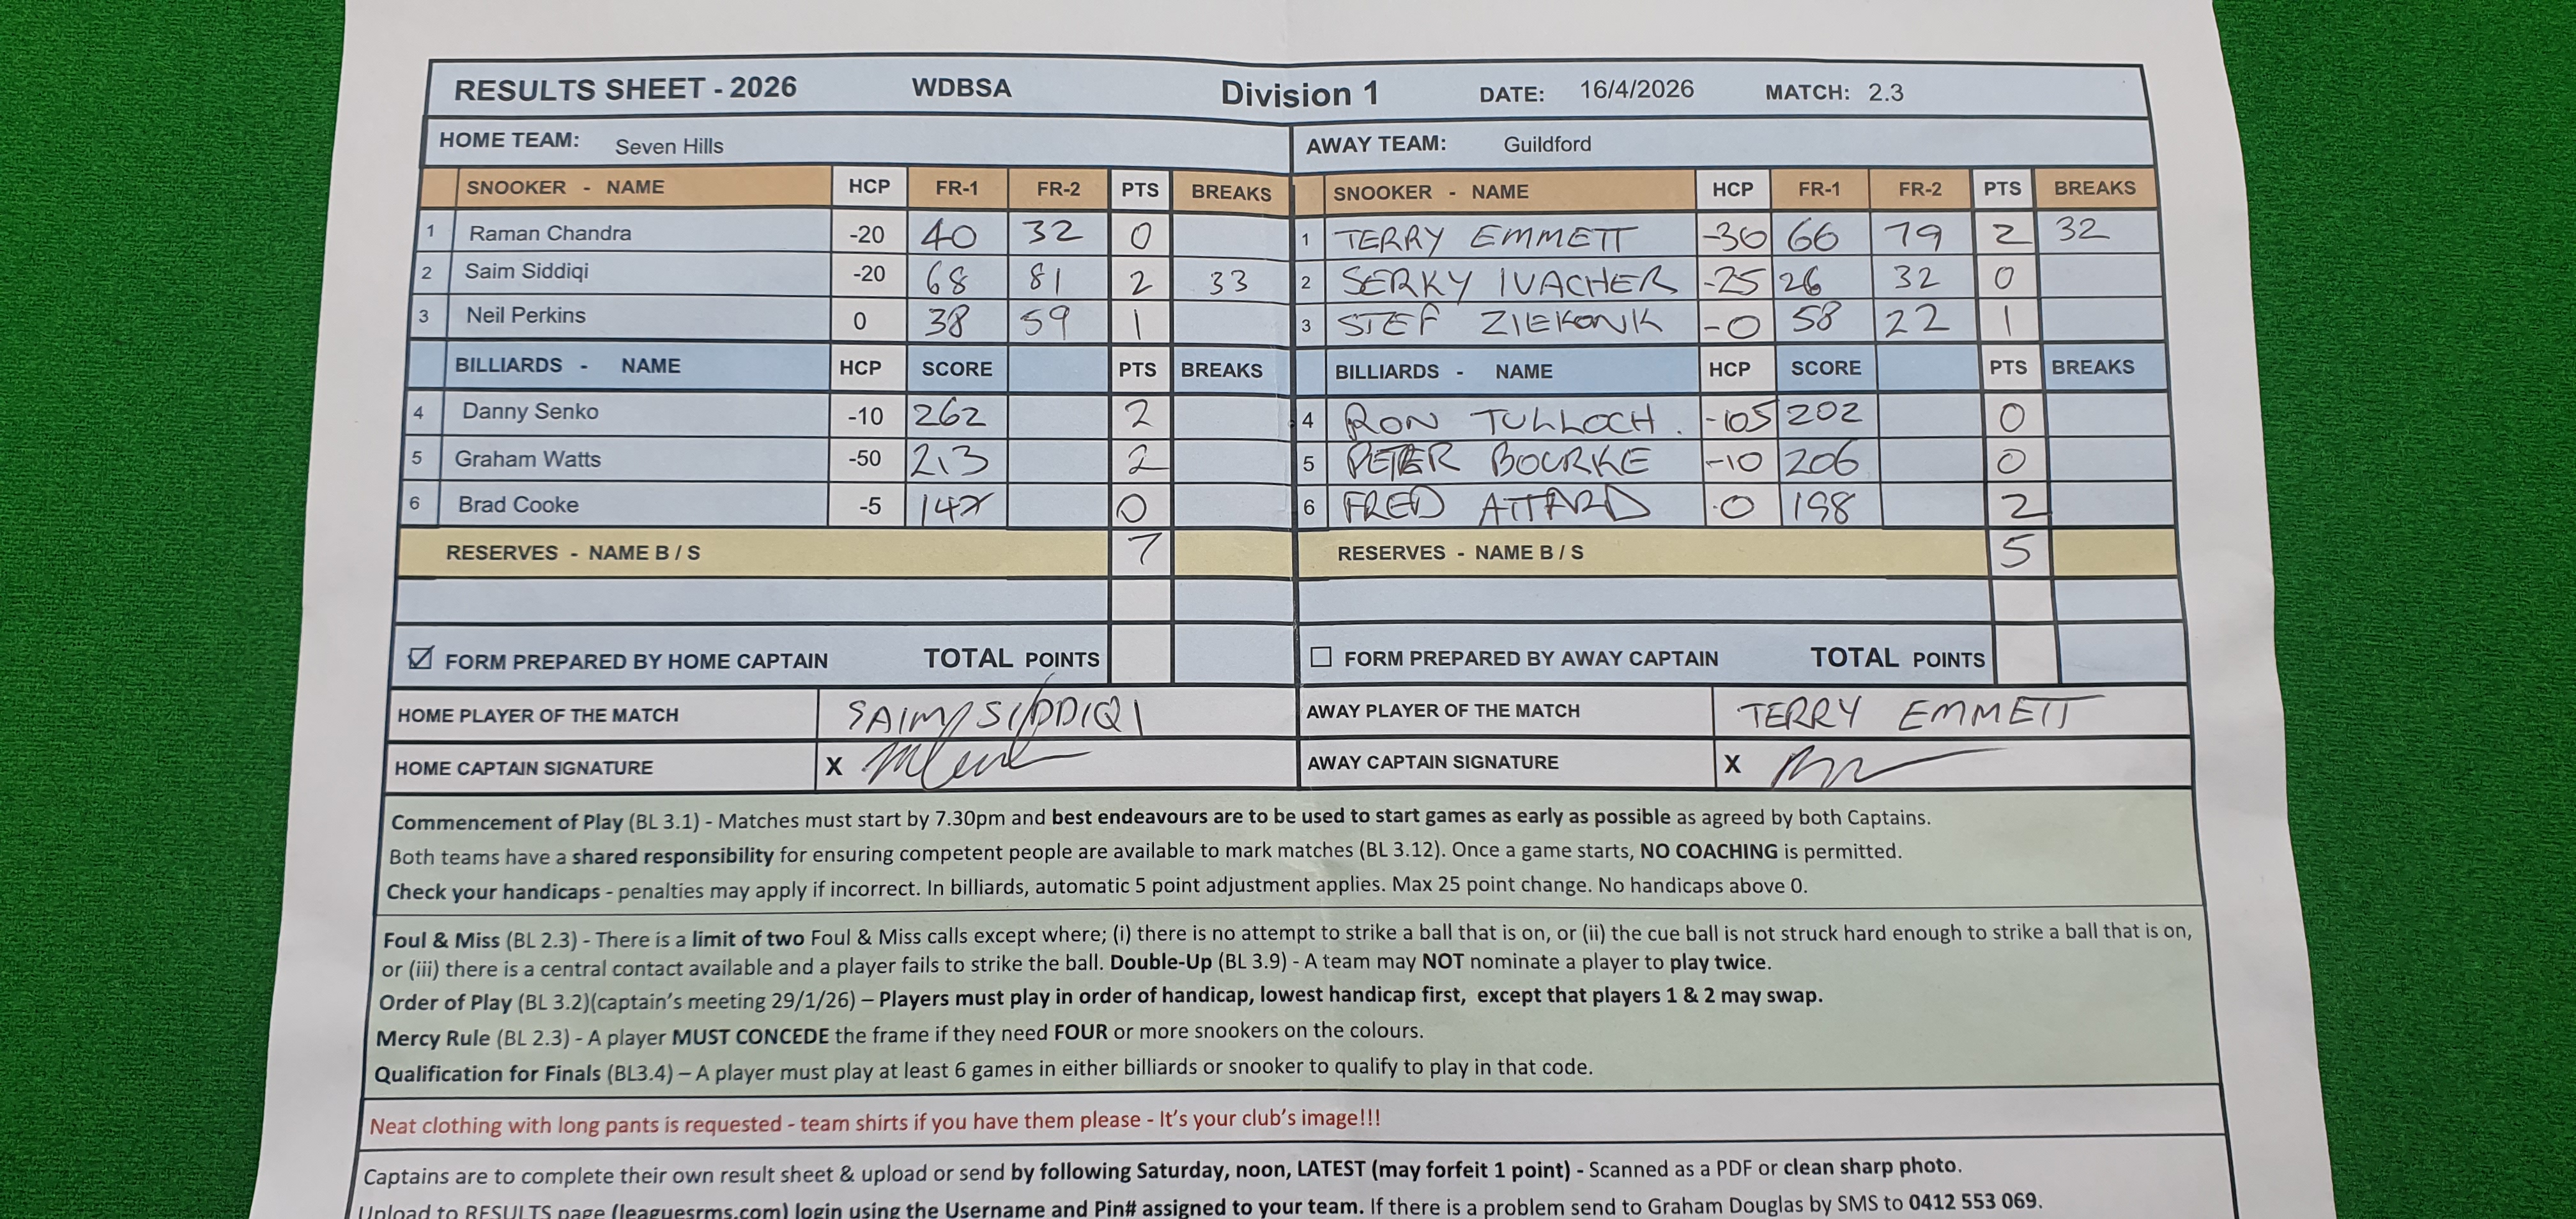 RESULTS SHEET - 2026 WDBSA Division 1 DATE: 16/4/2026 MATCH: 2.3
HOME TEAM: Seven Hills AWAY TEAM: Guildford
SNOOKER - NAME HCP FR-1 FR-2 PTS BREAKS SNOOKER - NAME HCP FR-1 FR-2 PTS BREAKS
1 Raman Chandra -20 40 32 0 1 TERRY EMMETT -30 66 79 2 32
2 Saim Siddiqi -20 68 81 2 33 2 SERKY IVACHER -25 26 32 0
3 Neil Perkins 0 38 59 1 3 STEF ZIEKONIK -0 58 22 1
BILLIARDS - NAME HCP SCORE PTS BREAKS BILLIARDS - NAME HCP SCORE PTS BREAKS
4 Danny Senko -10 262 2 4 RON TULLOCH. -105 202 0
5 Graham Watts -50 213 2 5 PETER BOURKE -10 206 0
6 Brad Cooke -5 0 6 FRED ATTARD 0 198 2
RESERVES - NAME B / S 7 RESERVES - NAME B / S 5
FORM PREPARED BY HOME CAPTAIN TOTAL POINTS FORM PREPARED BY AWAY CAPTAIN TOTAL POINTS
HOME PLAYER OF THE MATCH SAIM SIDDIQI AWAY PLAYER OF THE MATCH TERRY EMMETT
HOME CAPTAIN SIGNATURE X AWAY CAPTAIN SIGNATURE X
Commencement of Play (BL 3.1) - Matches must start by 7.30pm and best endeavours are to be used to start games as early as possible as agreed by both Captains.
Both teams have a shared responsibility for ensuring competent people are available to mark matches (BL 3.12). Once a game starts, NO COACHING is permitted.
Check your handicaps - penalties may apply if incorrect. In billiards, automatic 5 point adjustment applies. Max 25 point change. No handicaps above 0.
Foul & Miss (BL 2.3) - There is a limit of two Foul & Miss calls except where; (i) there is no attempt to strike a ball that is on, or (ii) the cue ball is not struck hard enough to strike a ball that is on,
or (iii) there is a central contact available and a player fails to strike the ball. Double-Up (BL 3.9) - A team may NOT nominate a player to play twice.
Order of Play (BL 3.2)(captain's meeting 29/1/26) – Players must play in order of handicap, lowest handicap first, except that players 1 & 2 may swap.
Mercy Rule (BL 2.3) - A player MUST CONCEDE the frame if they need FOUR or more snookers on the colours.
Qualification for Finals (BL3.4) – A player must play at least 6 games in either billiards or snooker to qualify to play in that code.
Neat clothing with long pants is requested - team shirts if you have them please - It's your club's image!!!
Captains are to complete their own result sheet & upload or send by following Saturday, noon, LATEST (may forfeit 1 point) - Scanned as a PDF or clean sharp photo.
Upload to RESULTS page (leaguesrms.com) login using the Username and Pin# assigned to your team. If there is a problem send to Graham Douglas by SMS to 0412 553 069.